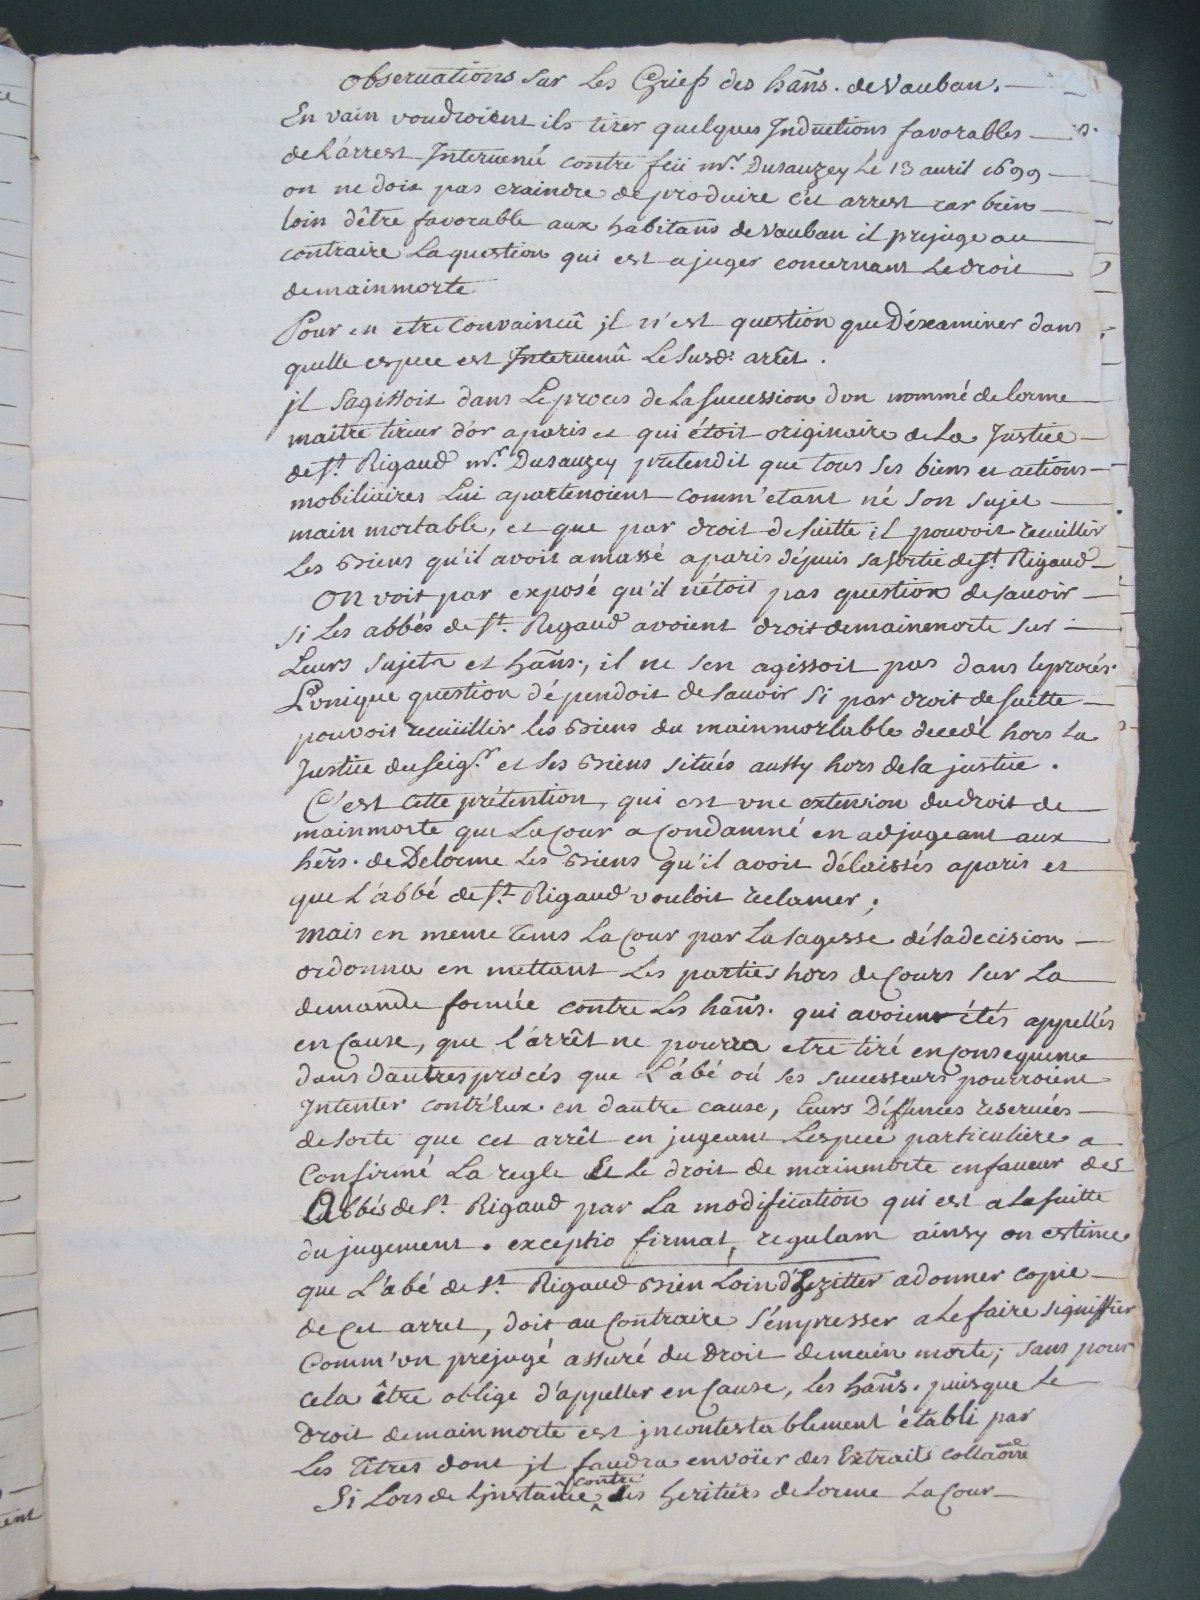 observations sur Les Griefs des hãns. de Vauban.
En vain voudroient ils tirer quelques Inductions favorables
de L'arrest Intervenû contre feü mr. Dusauzey Le 13 avril 1699
on ne doit pas craindre de produire cet arrest car bien
loin d'être favorable aux habitans de Vauban il prejuge au
contraire La question qui est a juger concernant Le droit
de mainmorte
Pour en etre convaincû jl n'est question que D'examiner dans
quelle espece est Intervenû Le susd. arrêt.
jl s'agissoit dans Le proces de La succession d'un nommé de lorme
maitre tireur d'or a paris et qui étoit originaire de La Justice
de st. Rigaud mr. Dusauzey prétendit que tous ses biens et actions
mobiliaires Lui apartenoient comm'etant né son sujet
main mortable, et que par droit de suitte il pouvoit recuillir
Les Biens qu'il avoit amassé a paris dépuis sa sortie de st. Rigaud
On voit par exposé qu'il n'étoit pas question de sauoir
si Les abbés de st. Regaud avoient droit de mainmorte sur
Leurs sujets et hãns., il ne s'en agissoit pas dans le procés.
L'unique question dépendoit de sauoir si par droit de suitte
pouvoit recuiillir les Biens du mainmortable decedé hors La
Justice du seigr. et ses Biens situés aussy hors de la justice.
C'est cette prétention, qui est une extension du droit de
mainmorte que La Cour a Condamné en adjugeant aux
hers. de Delorme Les Biens qu'il avoit délaissés a paris et
que L'abbé de st. Rigaud vouloit reclamer;
mais en meme tems La Cour par La sagesse dé sa decision
ordonna en mettant Les parties hors de Cours sur La
demande formée contre Les hãns. qui avoient étés appellés
en Cause, que l'arrêt ne pourra etre tiré en Consequence
dans d'autres procés que L'abé où ses successeurs pourroient
Intenter contr'Eux en d'autre cause, leurs Déffences reservées
de sorte que cet arrêt en jugeant L'espece particuliere a
Confirmé La regle Et le droit de mainmorte en faueur des
Abbés de st. Rigaud par La modification qui est a La suitte
du jugement. exceptio firmat regulam ainsy on estime
que L'abé de st. Rigaud Bien Loin d'hezitter a donner copie
de cet arret, doit au Contraire s'empresser a Le faire signiffier
Comm'un prejugé assuré du Droit de main morte; sans pour
cela être oblige d'appeller en Cause, les hãns. puisque Le
Droit de mainmorte est jncontestablement établi par
Les Titres dont jl faudra envoïer des Extraits
Si Lors de L'jnstance contre Les heritiers de Lorme La Cour